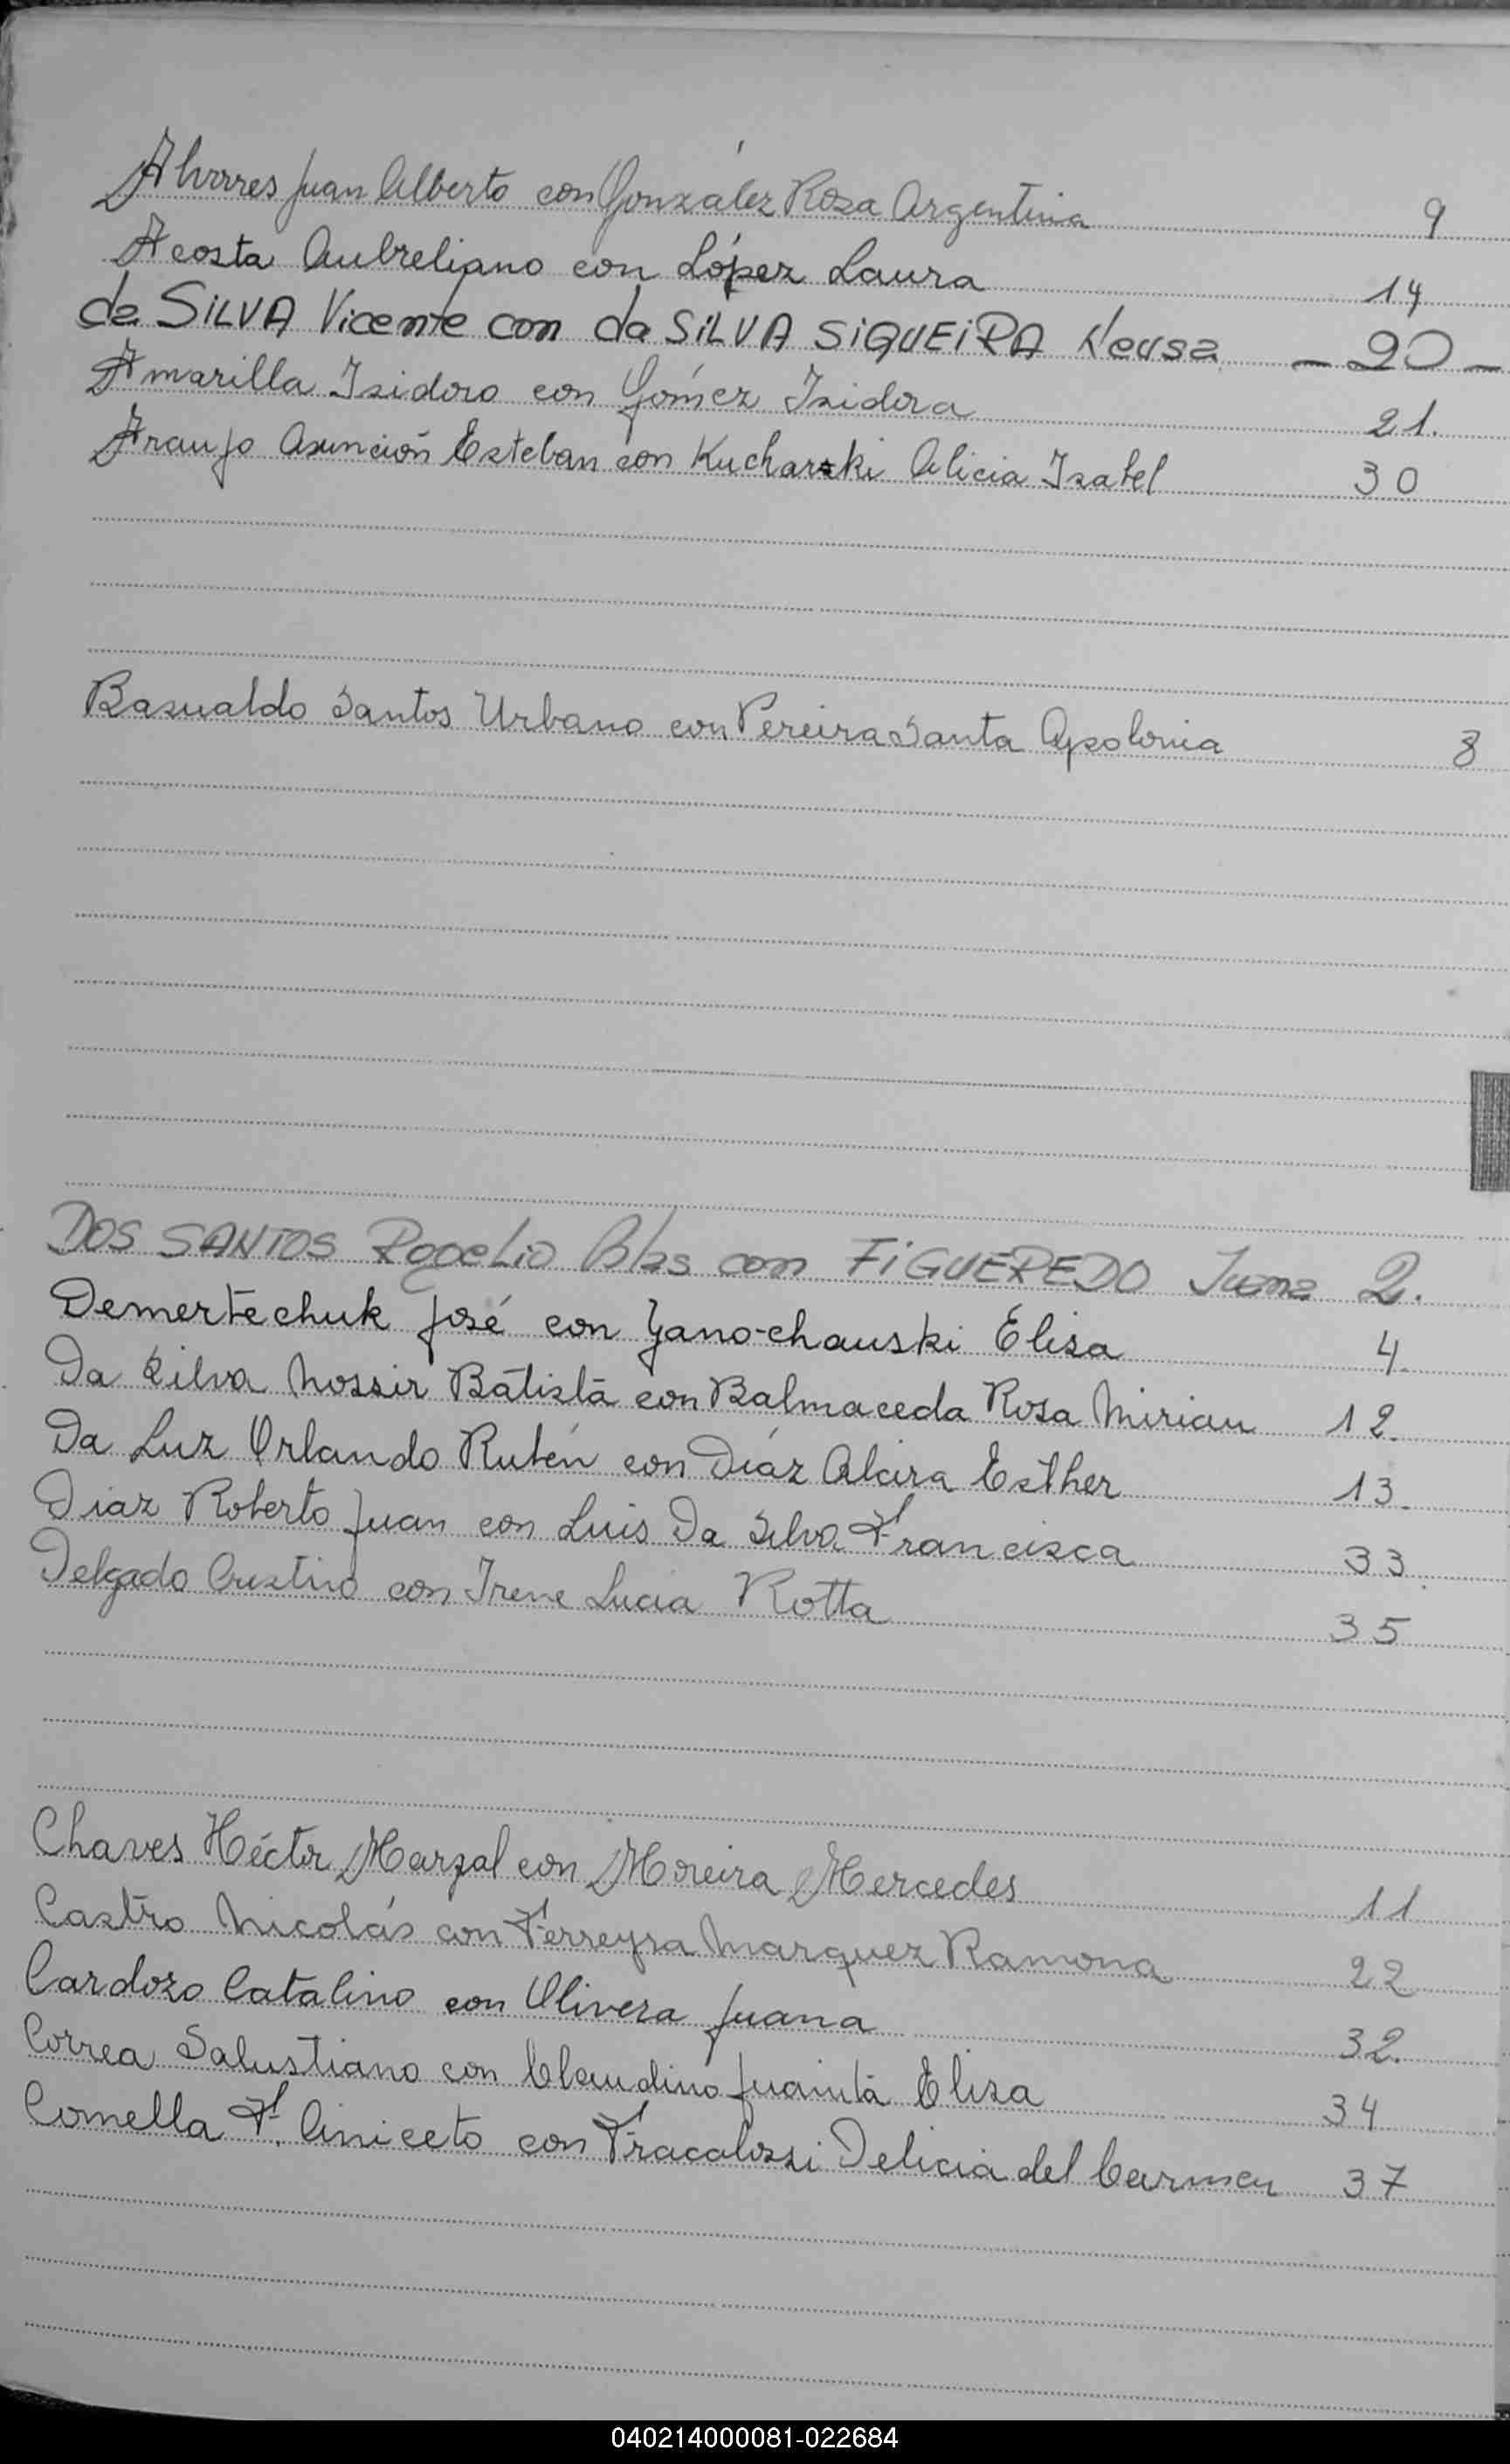 Alvarres Juan Alberto con González Rosa Argentina 9
Acosta Aubreliano con López Laura 14
da SILVA Vicente con da SILVA SIQUEIRA Neusa - 20 -
Amarilla Isidoro con Gómez Isidora 21.
Araujo Asunción Esteban con Kucharski Alicia Isabel 30
Basualdo Santos Urbano con Pereira Santa Apolonia 8
DOS SANTOS Rogelio Blas con FIGUEREDO Juana 2.
Demertechuk José con Yano-chauski Elisa 4.
Da Silva Mossir Batista con Balmaceda Rosa Mirian 12.
Da Luz Orlando Rubén con Díaz Alcira Esther 13.
Diaz Roberto Juan con Luis Da Silva Francisca 33.
Delgado Custino con Irene Lucia Rotta 35
Chaves Héctor Marzal con Moreira Mercedes 11
Castro Nicolás con Ferreyra Marquez Ramona 22
Cardozo Catalino con Olivera Juana 32.
Correa Salustiano con Claudino Juanita Elisa 34
Comella F. Aniceto con Fracalossi Delicia del Carmen 37
040214000081-022684